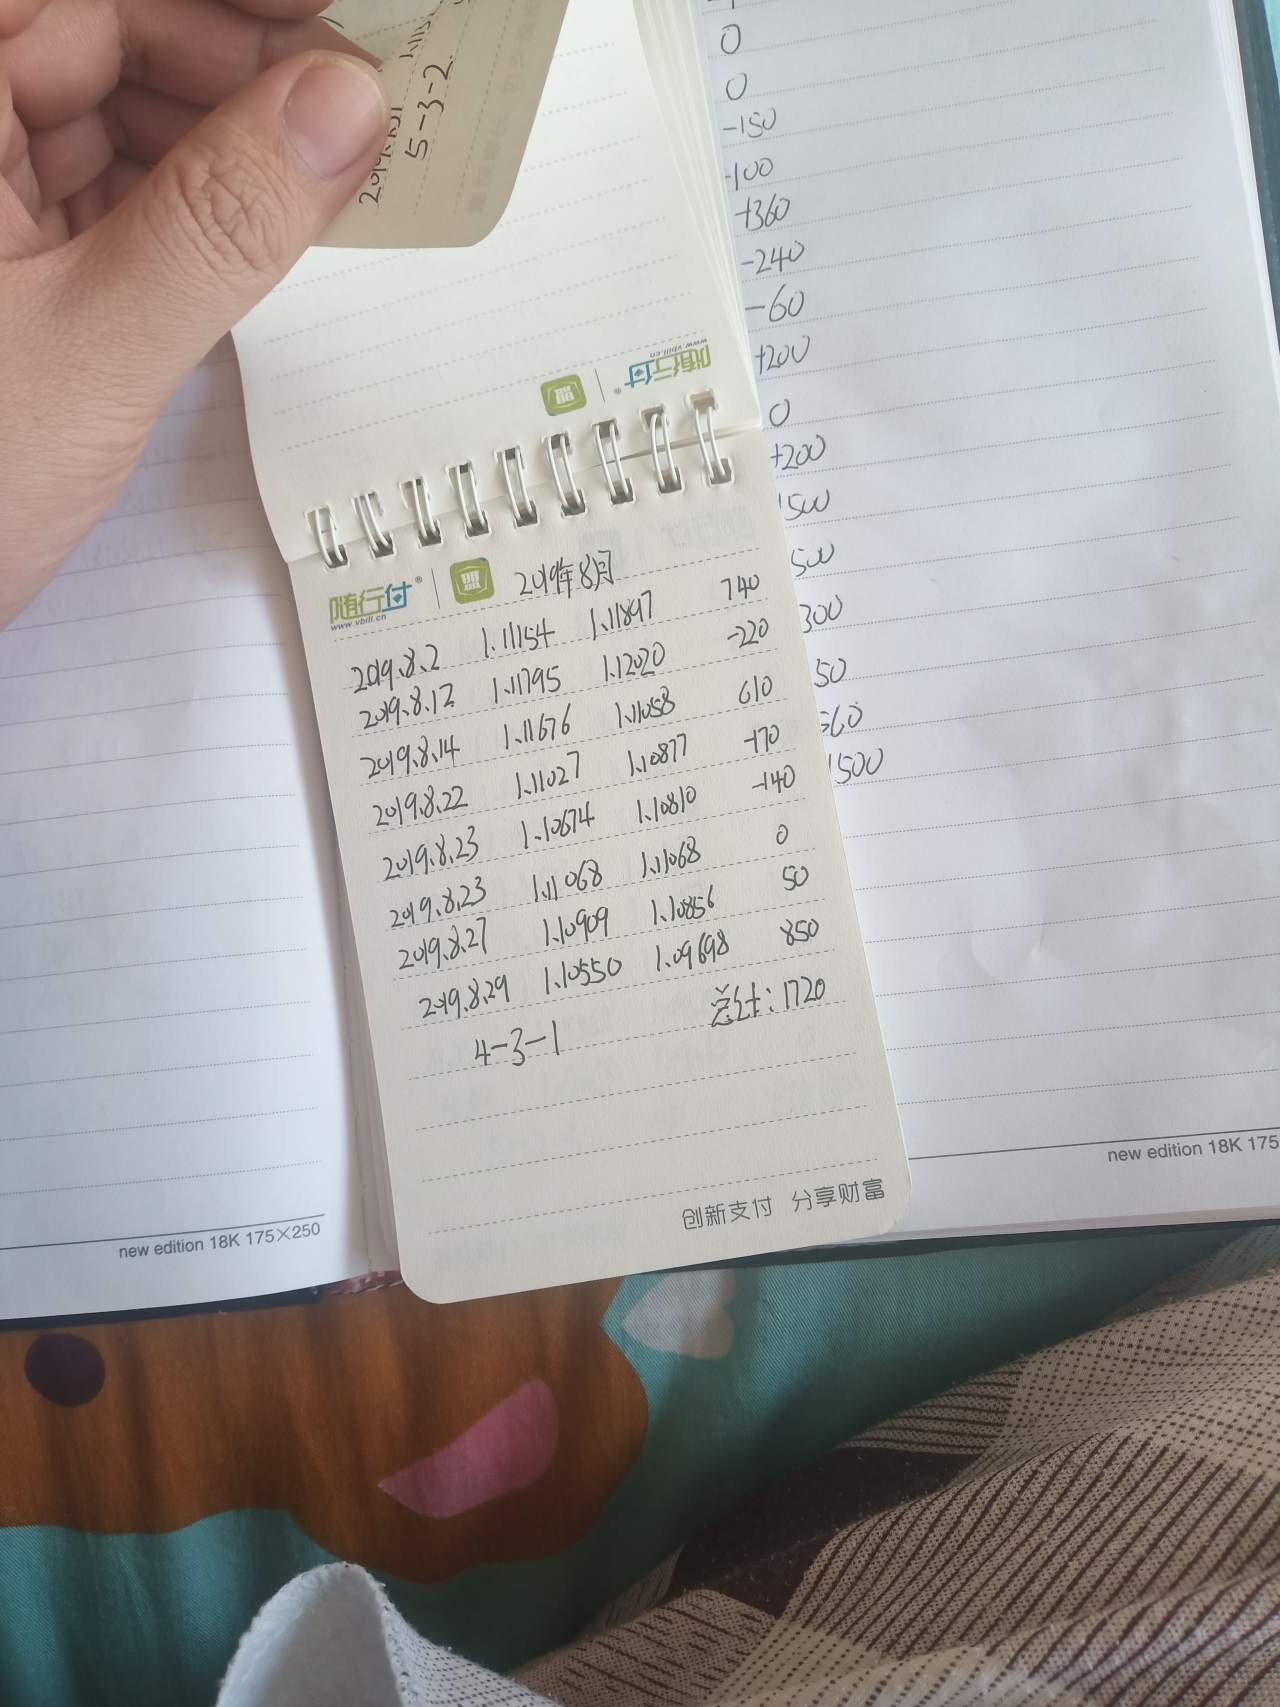 5-3-2
0
0
-150
-100
+360
-240
-60
+200
0
+200
500
500
300
50
560
1500
随行付®
www.vbill.cn
盟
随行付® 盟 2019年8月
www.vbill.cn
2019.8.2 1.11154 1.11897 740
2019.8.12 1.11795 1.12020 -220
2019.8.14 1.11676 1.11058 610
2019.8.22 1.11027 1.10877 -170
2019.8.23 1.10674 1.10810 -140
2019.8.23 1.11068 1.11068 0
2019.8.27 1.10909 1.10856 50
2019.8.29 1.10550 1.09698 850
4-3-1 总计:1720
创新支付 分享财富
new edition 18K 175×250
new edition 18K 175